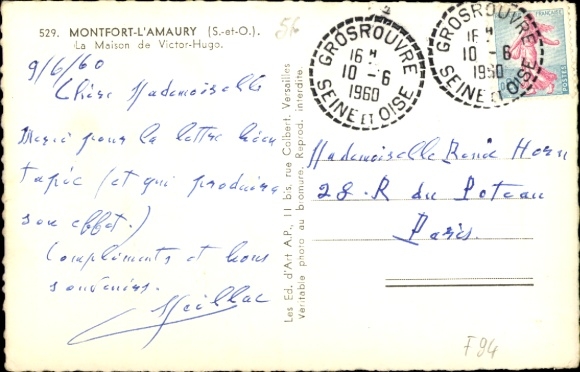 529. MONTFORT-L'AMAURY (S.-et-O.).
La Maison de Victor-Hugo.
56
9/6/60
Chère Mademoiselle
Merci pour la lettre bien
tapée (et qui produira
son effet.)
Compliments et bons
souvenirs.
Meillac
Les Ed. d'Art A.P., 11 bis, rue Colbert, Versailles
Véritable photo au bromure. Reproduction interdite.
GROSROUVRE
16 H
10 - 6
1960
SEINE ET OISE
GROSROUVRE
16 H
10 - 6
1960
SEINE ET OISE
FRANÇAISE
POSTES
Mademoiselle Renée Horn
28. R du Poteau
Paris.
F94